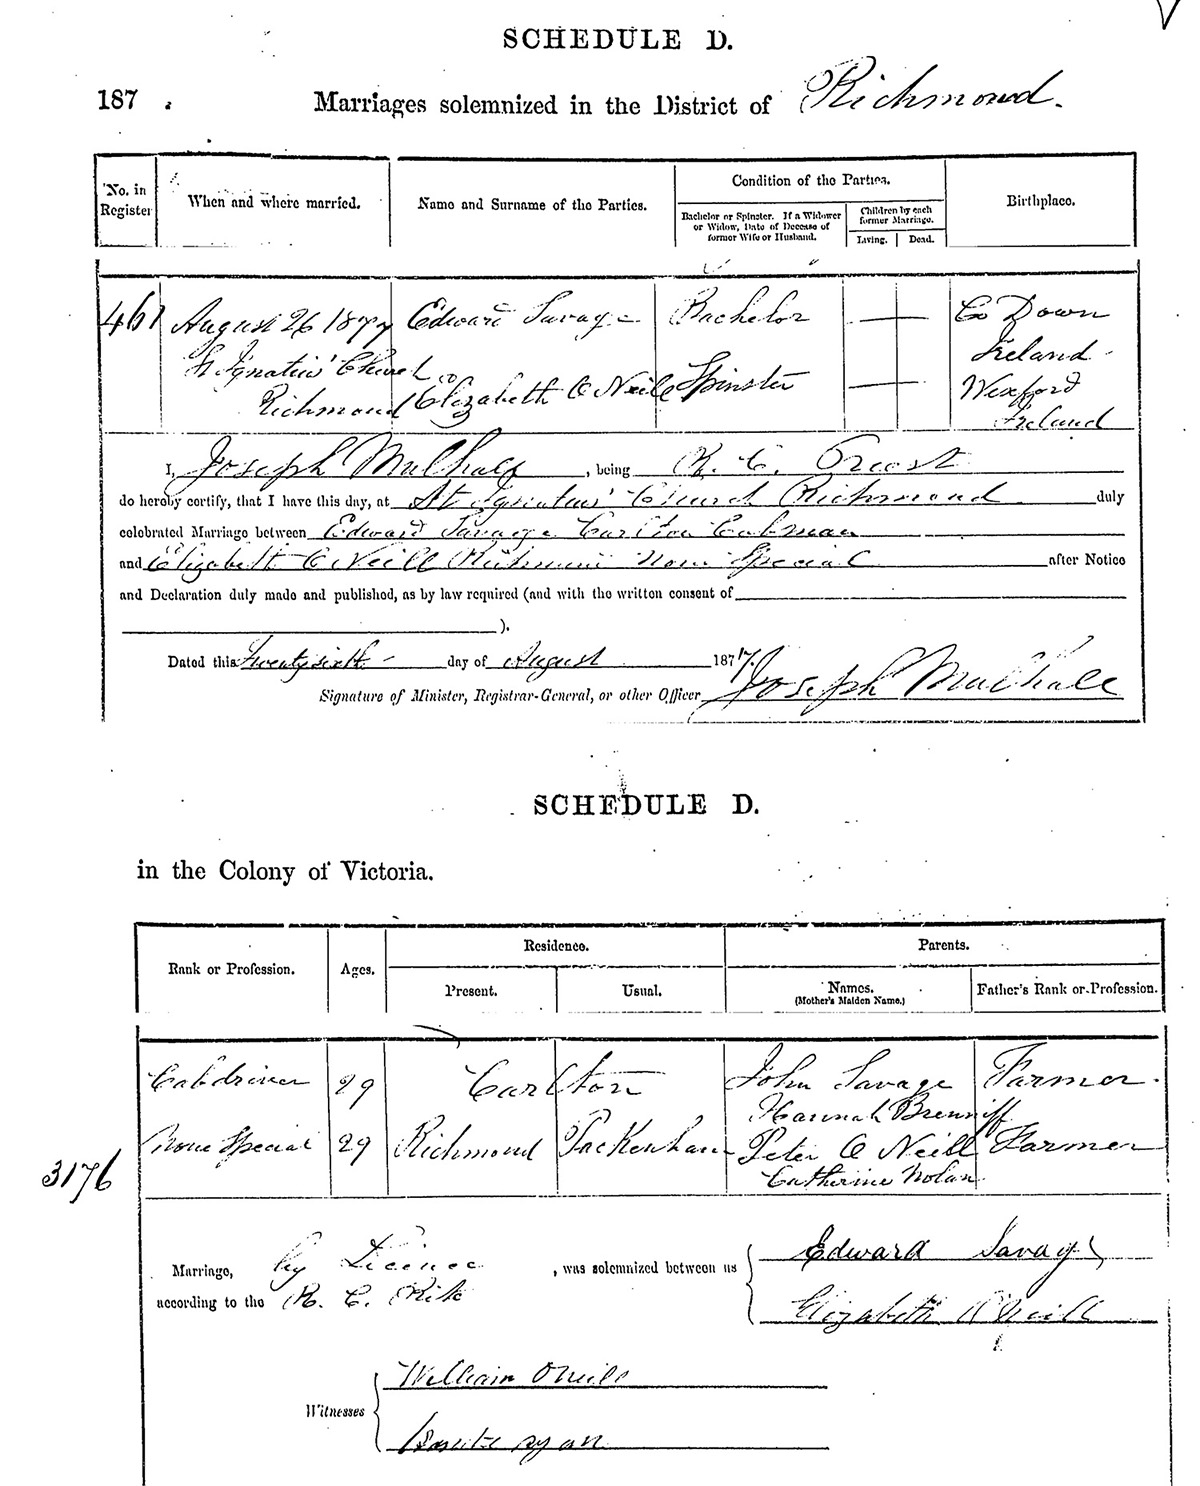 SCHEDULE D.
187 . Marriages solemnized in the District of Richmond.
No. in Register
When and where married.
Name and Surname of the Parties.
Condition of the Parties.
Bachelor or Spinster. If a Widower or Widow, Date of Decease of former Wife or Husband.
Children by each former Marriage.
Living. Dead.
Birthplace.
461
August 26 1877
St Ignatius' Church
Richmond
Edward Savage
Elizabeth O Neill
Bachelor
Spinster
Co Down
Ireland
Wexford
Ireland
I, Joseph Mulhall, being R. C. Priest
do hereby certify, that I have this day, at St Ignatius' Church Richmond duly
celebrated Marriage between Edward Savage Carlton Cabman
and Elizabeth O'Neill Richmond None Special after Notice
and Declaration duly made and published, as by law required (and with the written consent of
).
Dated this Twenty sixth day of August 1877.
Signature of Minister, Registrar-General, or other Officer Joseph Mulhall
SCHEDULE D.
in the Colony of Victoria.
Rank or Profession.
Ages.
Residence.
Present. Usual.
Parents.
Names.
(Mother's Maiden Name.)
Father's Rank or Profession.
Cabdriver 29 Carlton John Savage Farmer.
Hannah Brenniff
None Special 29 Richmond Packenham Peter O Neill Farmer
3176
Catherine Nolan
Marriage, by Licence, was solemnized between us
according to the R. C. Rite
Edward Savage
Elizabeth O'Neill
Witnesses
William O'Neill
Ryan